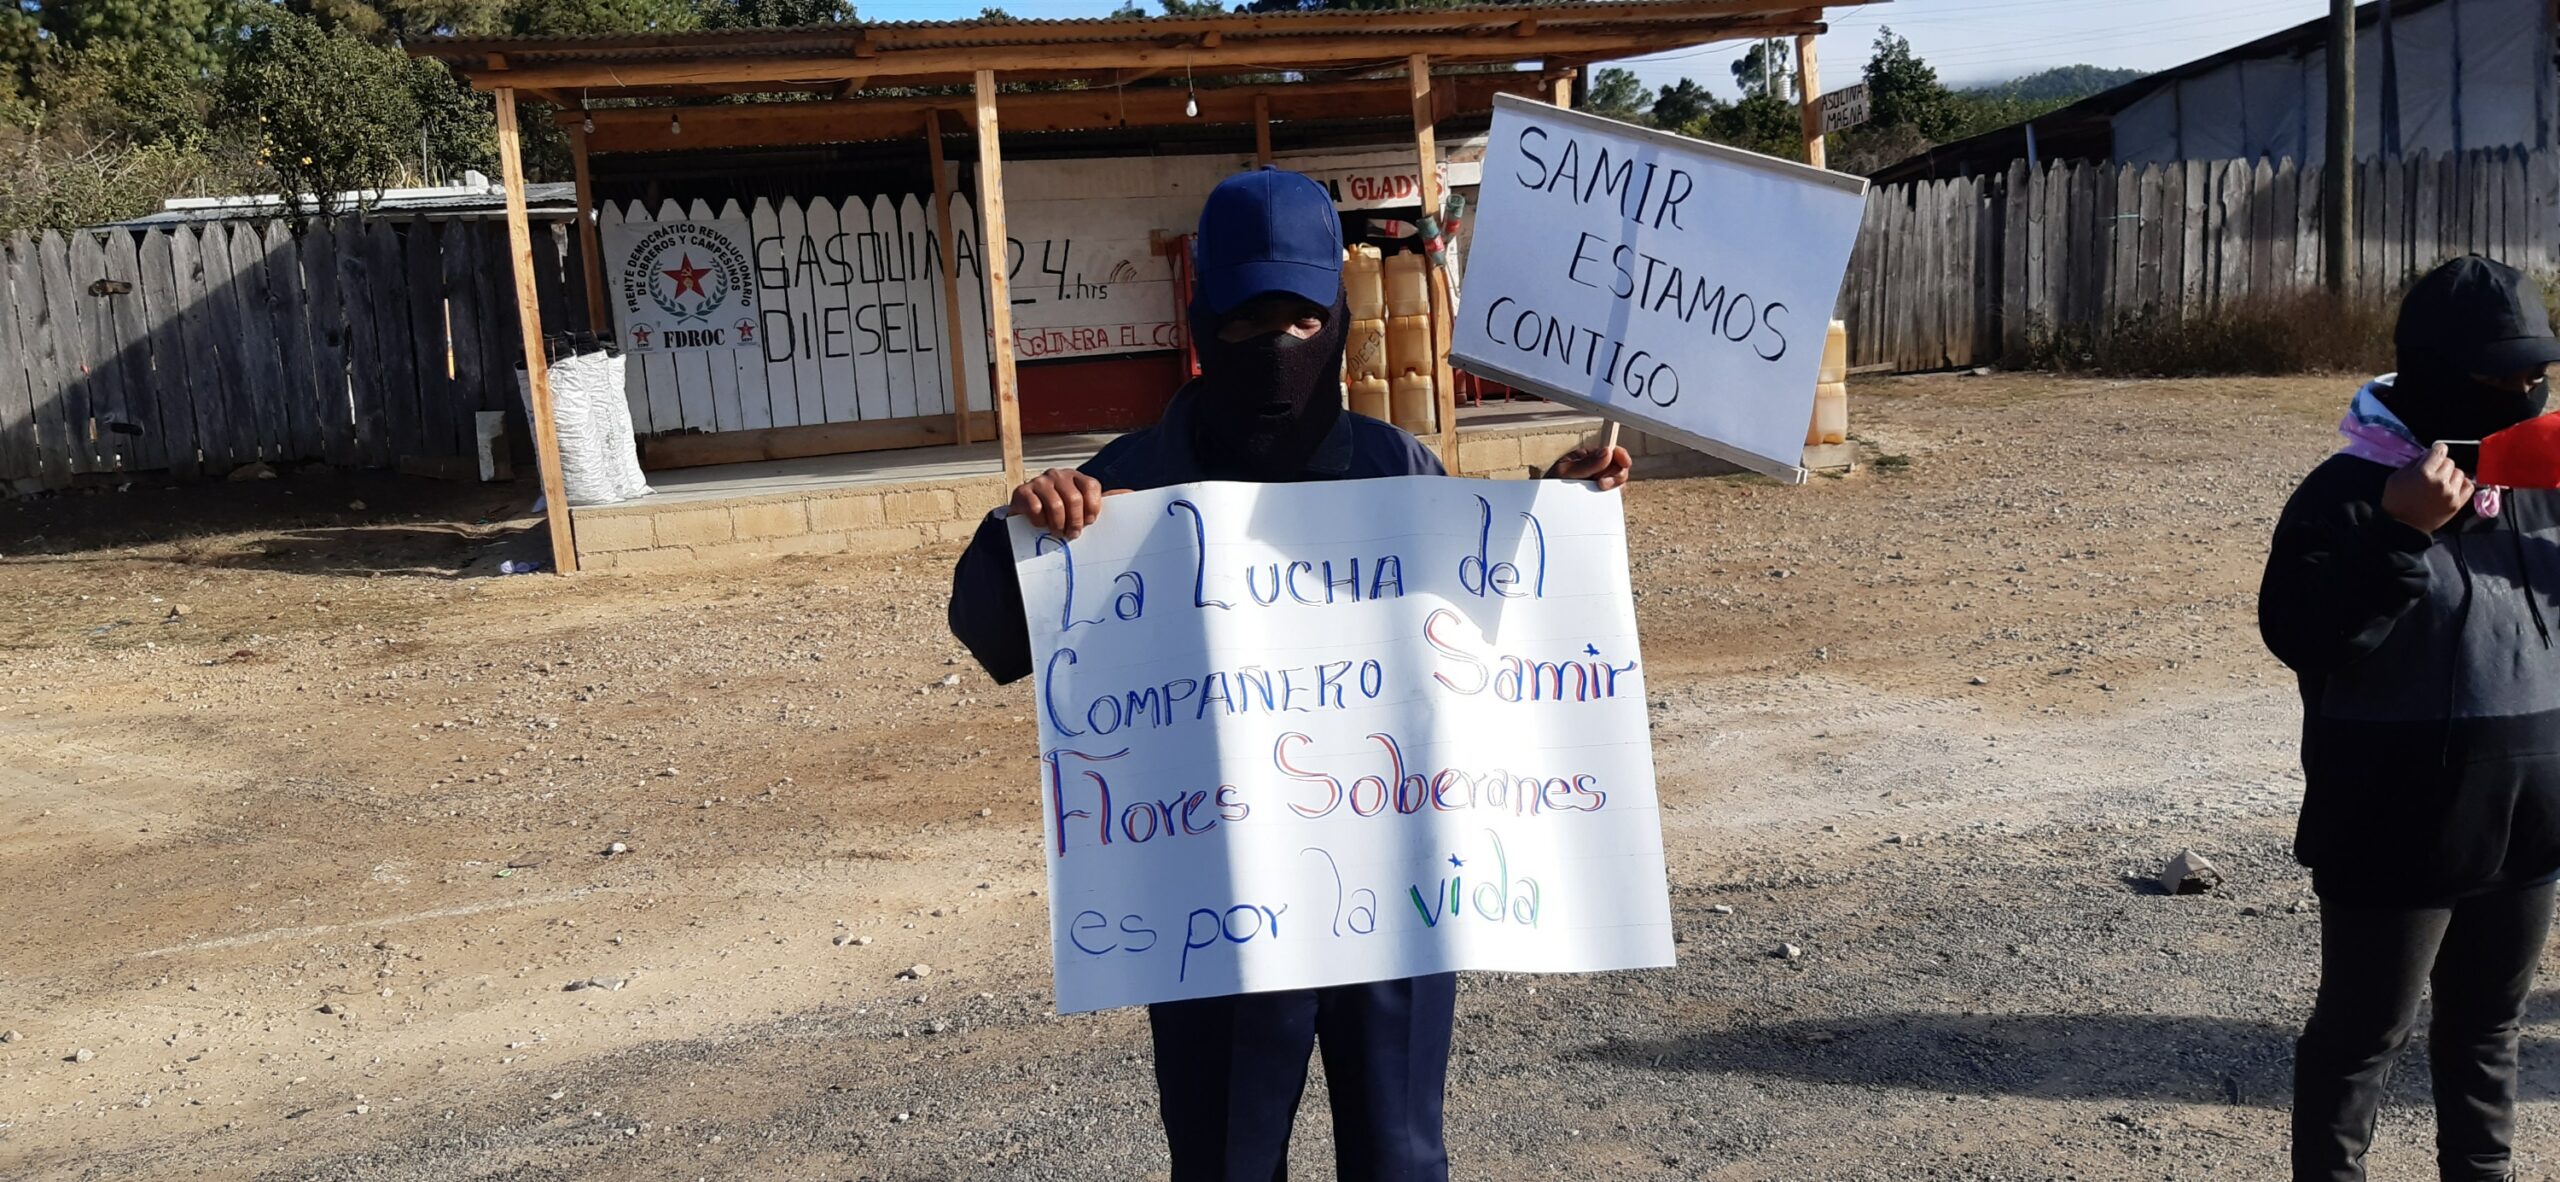 FRENTE DEMOCRÁTICO REVOLUCIONARIO
DE OBREROS Y CAMPESINOS
FDROC
GASOLINA 24.hrs
DIESEL
EL
"GLADYS"
DIESEL
GASOLINA
MAGNA
SAMIR
ESTAMOS
CONTIGO
La LUCHA del
COMPAÑERO Samir
Flores Soberanes
es por la vida